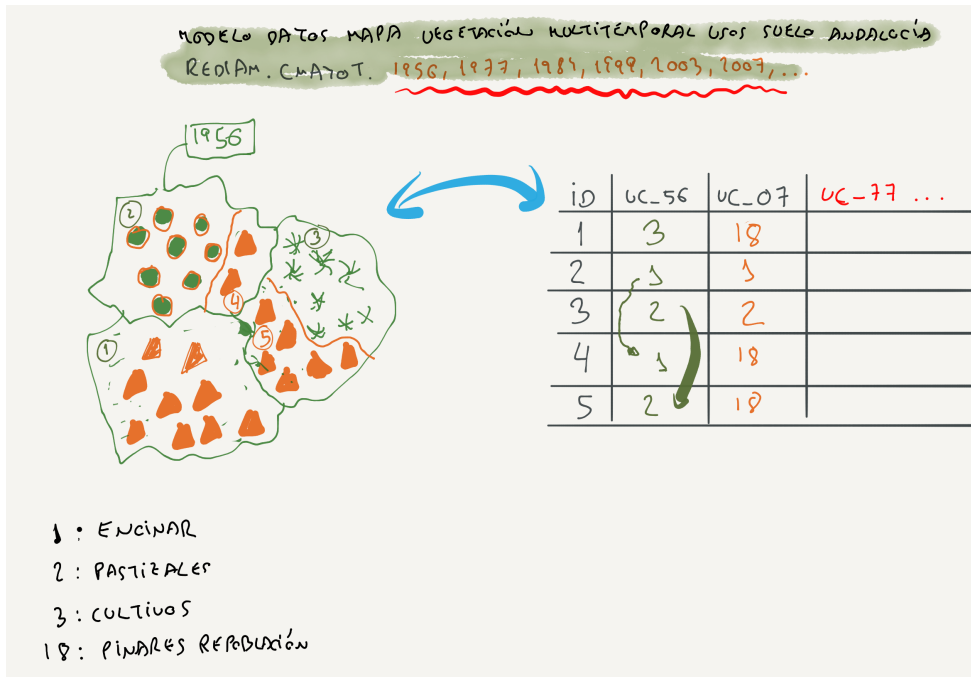 MODELO DATOS MAPA VEGETACIÓN MULTITEMPORAL USOS SUELO ANDALUCÍA
REDIAM. CMAYOT. 1956, 1977, 1984, 1999, 2003, 2007, ...
1956
2
3
4
5
1
ID UC_56 UC_07 UC_77 ...
1 3 18
2 1 1
3 2 2
4 1 18
5 2 18
1 : ENCINAR
2 : PASTIZALES
3 : CULTIVOS
18 : PINARES REPOBLACIÓN